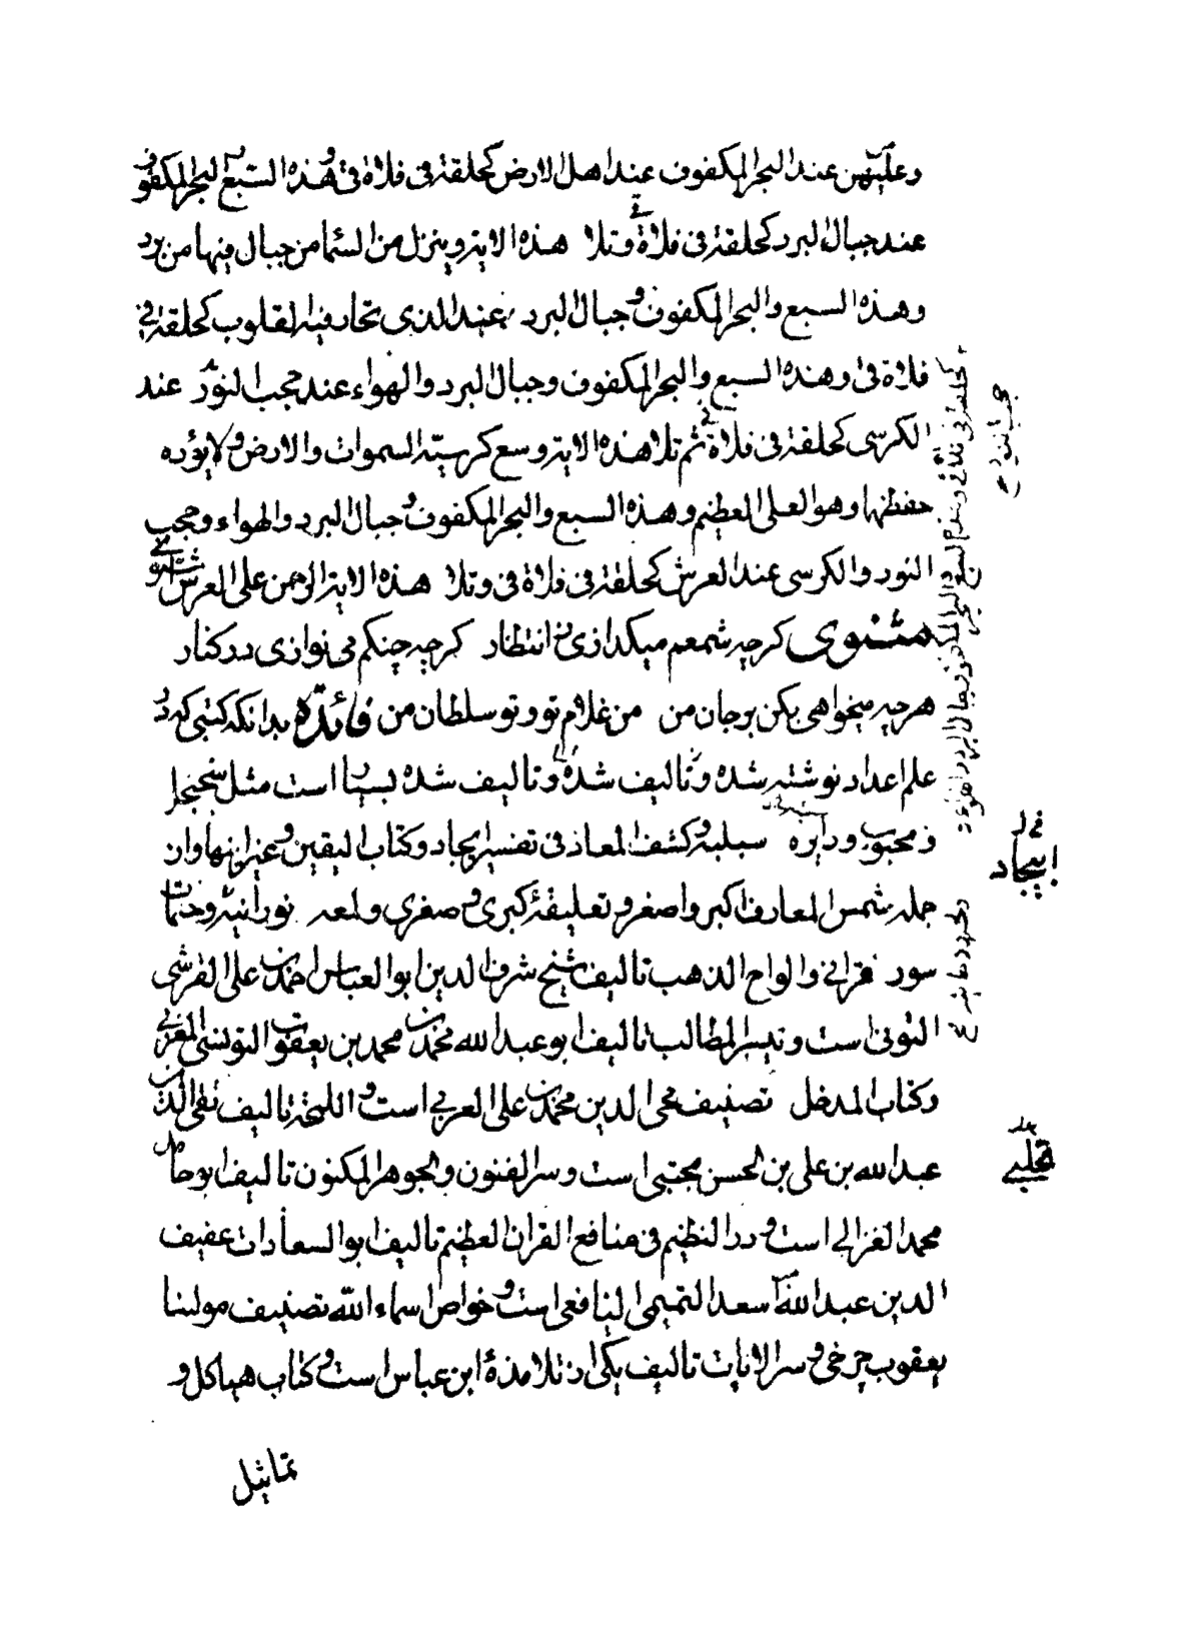 وعلیهن عند البحر المکفوف عند اهل الارض کحلقة فی فلاة قی وهذه السبع البحر المکفوف
عند جبال البرد کحلقة فی فلاة قی وتلا هذه الایة وینزل من السماء من جبال فیها من برد
وهذه السبع والبحر المکفوف وجبال البرد عند الذی تحار فیه القلوب کحلقة فی
فلاة قی وهذه السبع والبحر المکفوف وجبال البرد والهواء عند حجب النور عند
الکرسی کحلقة فی فلاة قی ثم تلا هذه الایة وسع کرسیه السموات والارض ولا یؤده
حفظهما وهو العلی العظیم وهذه السبع والبحر المکفوف وجبال البرد والهواء وحجب
النور والکرسی عند العرش کحلقة فی فلاة قی وتلا هذه الایة الرحمن علی العرش استوی
مثنوی کرچه شمعم میکدازی ز انتظار کرچه چنکم می نوازی در کنار
هرچه میخواهی بکن بر جان من من غلام تو و تو سلطان من فائده بدانکه کتبی که در
علم اعداد نوشته شده و تالیف شده و تالیف شده بسیار است مثل سنجنجل
و محبوب و دایره سبلبه و کشف المعاذ فی تفسیر ایجاد و کتاب الیقین و غیر اینها و ان
جمله شمس المعارف اکبر و اصغر و تعلیقه کبری و صغری و لمعه نورانیه و ختمات
سور قرانی و الواح الذهب تالیف شیخ شرف الدین ابو العباس احمد بن علی القرشی
البونی است و تیسیر المطالب تالیف ابو عبد الله محمد بن محمد بن یعقوب التونسی المغربی
و کتاب المدخل تصنیف محی الدین محمد بن علی العربی است و اللمحة تالیف تقی الدین
عبد الله بن علی بن الحسن مجتبی است و سر الفنون و الجوهر المکنون تالیف ابو حامد
محمد الغزالی است و در النظیم فی منافع القران العظیم تالیف ابو السعادات عفیف
الدین عبد الله اسعد التمیمی الیافعی است و خواص اسماء الله تصنیف مولینا
یعقوب چرخی و سر الانبات تالیف یکی از تلامذه ابن عباس است و کتاب هیاکل و
تماثیل
ایجاد